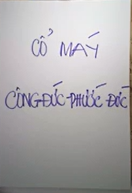 CỔ MÁY
CÔNG ĐỨC - PHƯỚC ĐỨC